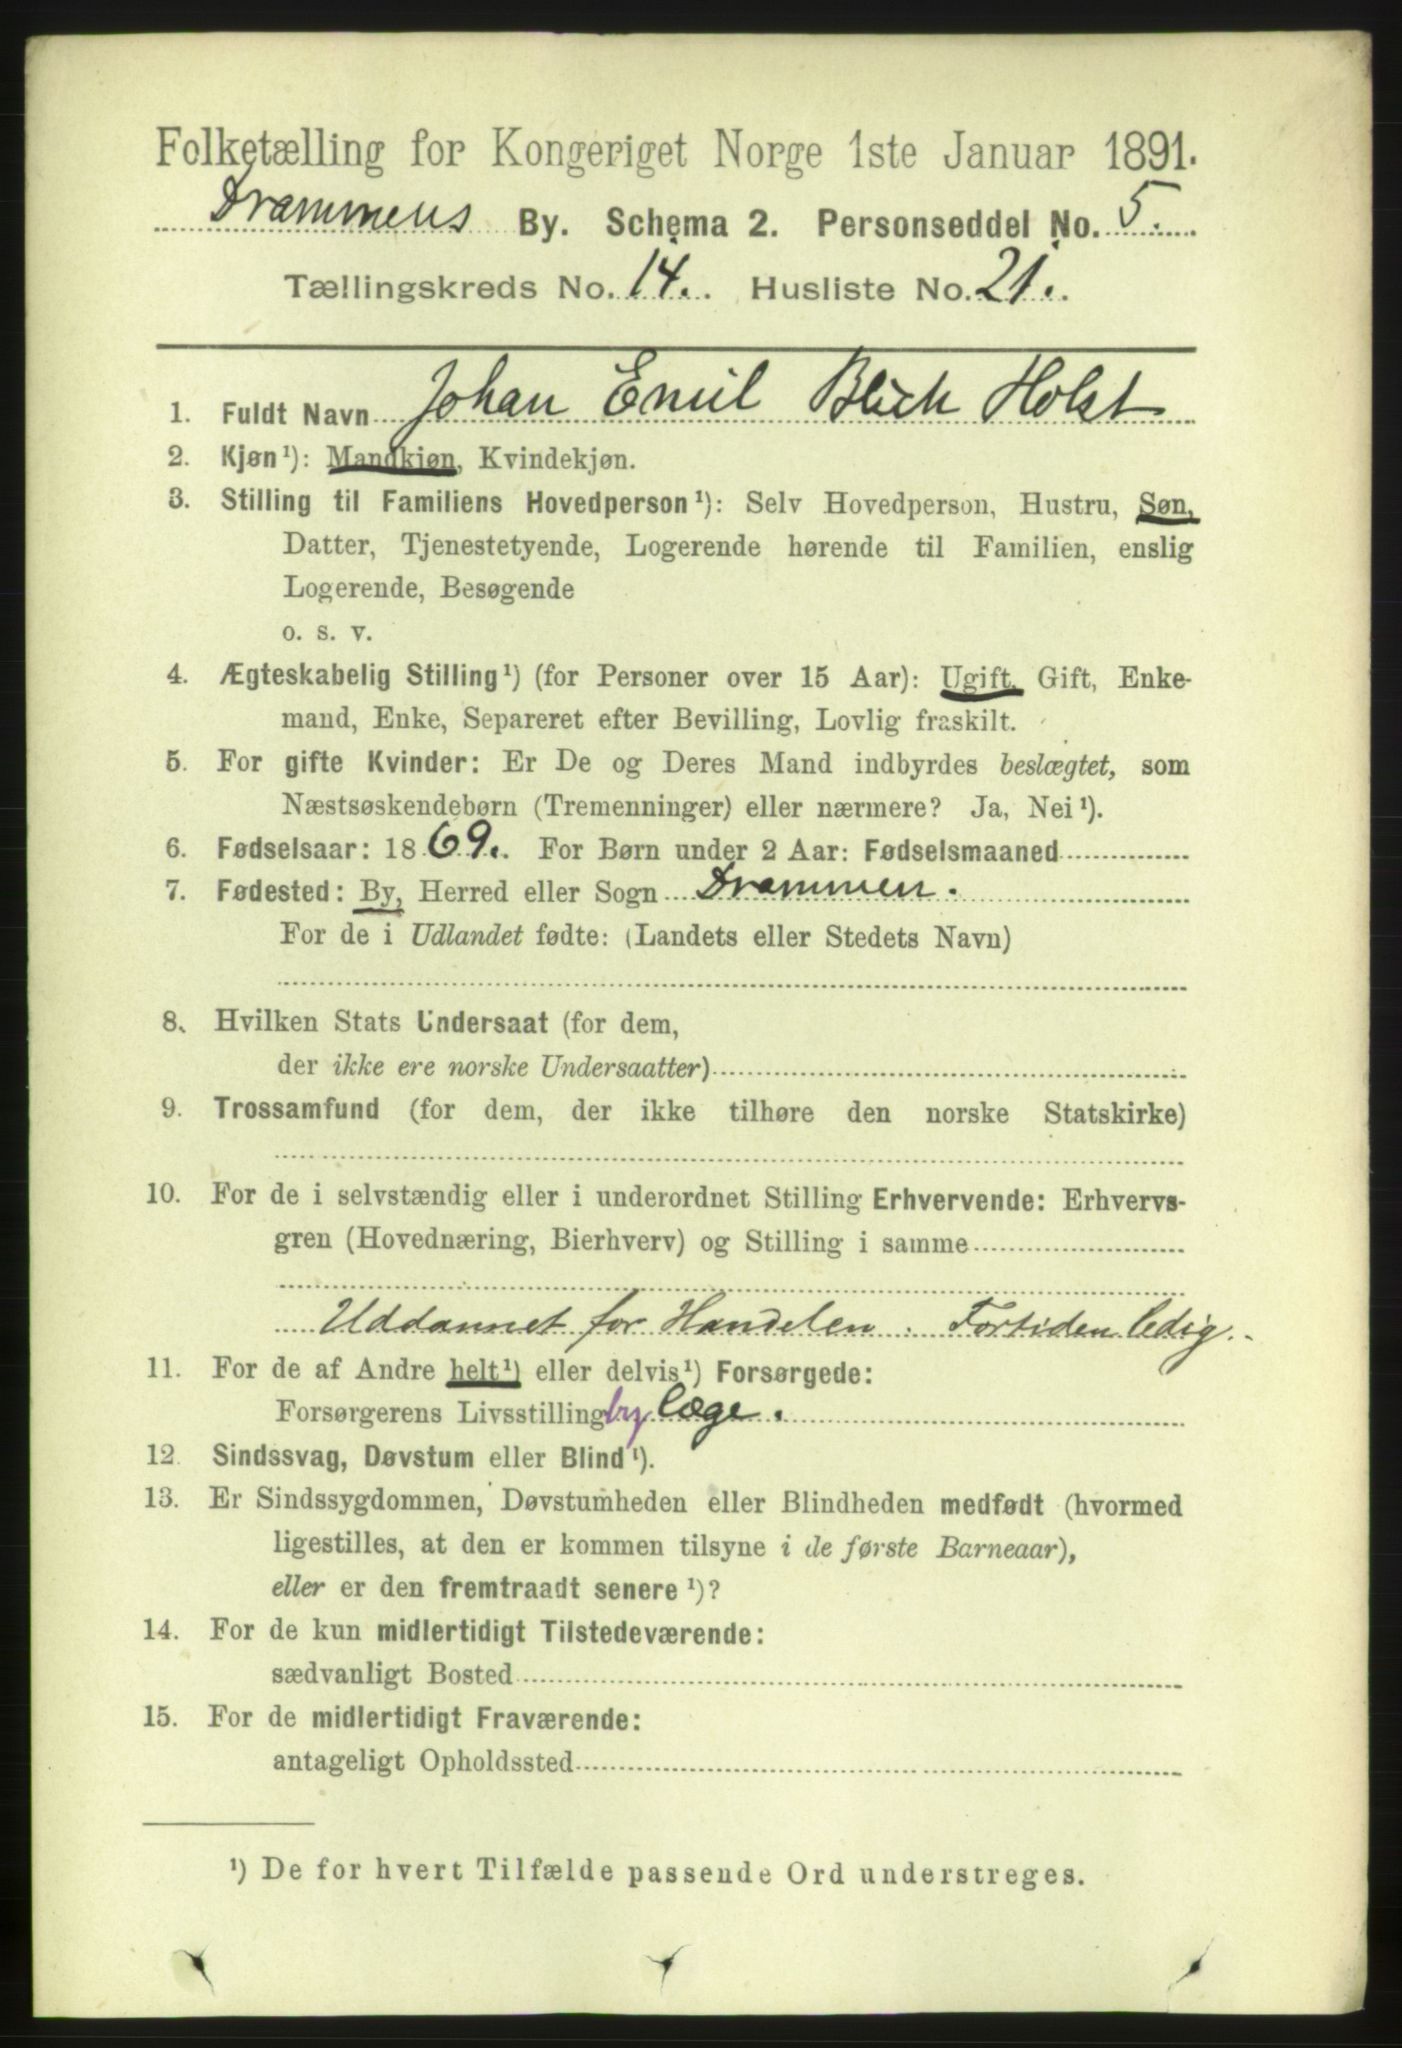 Folketælling for Kongeriget Norge 1ste Januar 1891.
Drammens By. Schema 2. Personseddel No. 5.
Tællingskreds No. 14. Husliste No. 21.
1. Fuldt Navn Johan Emil Blich Holst
2. Kjøn¹): Mandkjøn, Kvindekjøn.
3. Stilling til Familiens Hovedperson¹): Selv Hovedperson, Hustru, Søn,
Datter, Tjenestetyende, Logerende hørende til Familien, enslig
Logerende, Besøgende
o. s. v.
4. Ægteskabelig Stilling¹) (for Personer over 15 Aar): Ugift, Gift, Enke-
mand, Enke, Separeret efter Bevilling, Lovlig fraskilt.
5. For gifte Kvinder: Er De og Deres Mand indbyrdes beslægtet, som
Næstsøskendebørn (Tremenninger) eller nærmere? Ja, Nei¹).
6. Fødselsaar: 1869. For Børn under 2 Aar: Fødselsmaaned
7. Fødested: By, Herred eller Sogn Drammen.
For de i Udlandet fødte: (Landets eller Stedets Navn)
8. Hvilken Stats Undersaat (for dem,
der ikke ere norske Undersaatter)
9. Trossamfund (for dem, der ikke tilhøre den norske Statskirke)
10. For de i selvstændig eller i underordnet Stilling Erhvervende: Erhvervs-
gren (Hovednæring, Bierhverv) og Stilling i samme
Uddannet for Handelen. Fortiden ledig.
11. For de af Andre helt¹) eller delvis¹) Forsørgede:
Forsørgerens Livsstilling by læge.
12. Sindssvag, Døvstum eller Blind¹).
13. Er Sindssygdommen, Døvstumheden eller Blindheden medfødt (hvormed
ligestilles, at den er kommen tilsyne i de første Barneaar),
eller er den fremtraadt senere¹)?
14. For de kun midlertidigt Tilstedeværende:
sædvanligt Bosted
15. For de midlertidigt Fraværende:
antageligt Opholdssted
¹) De for hvert Tilfælde passende Ord understreges.